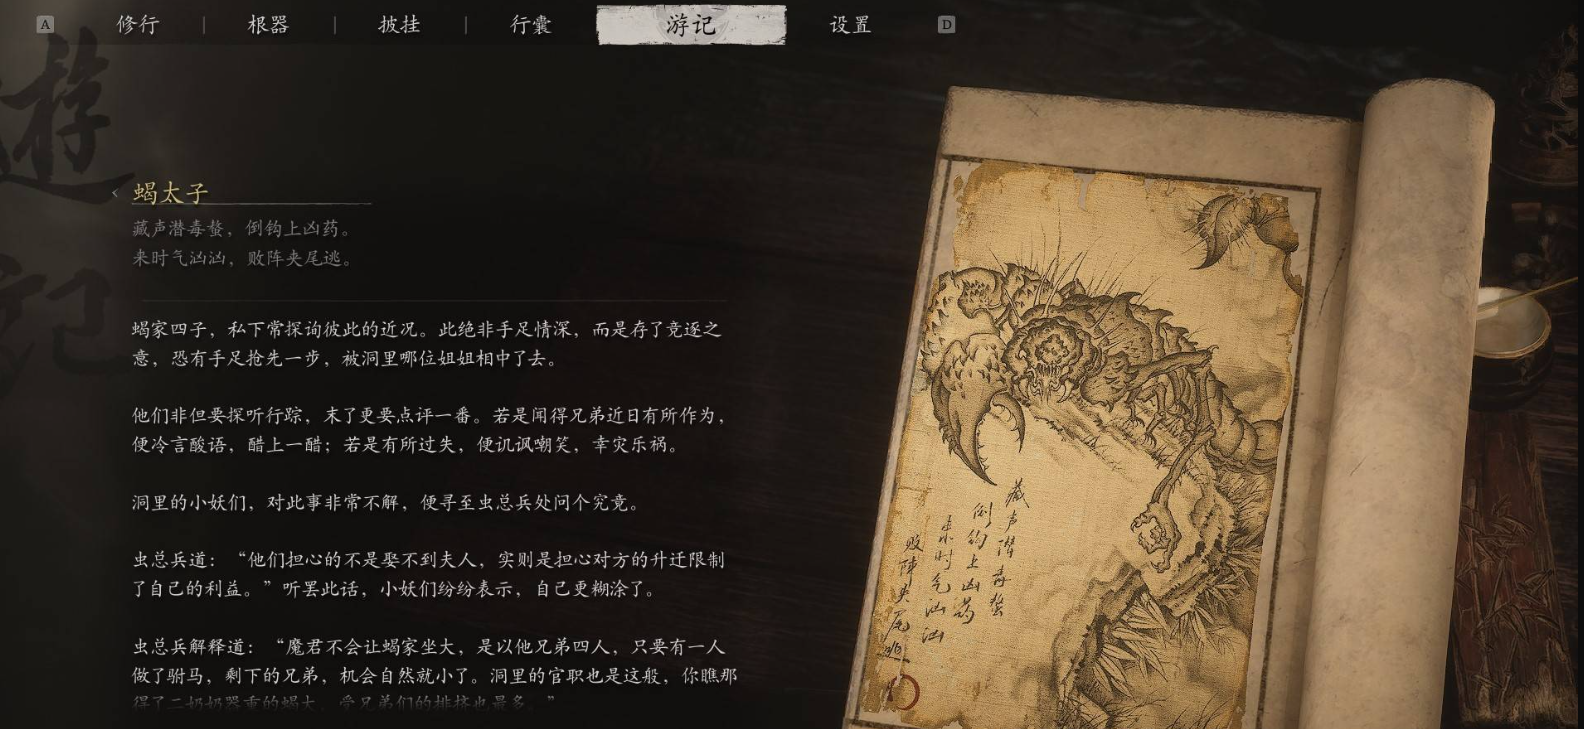 A 修行 | 根器 | 披挂 | 行囊 游记 设置 D
遊
记
蝎太子
藏声潜毒螯，倒钩上凶药。
来时气汹汹，败阵夹尾逃。
蝎家四子，私下常探询彼此的近况。此绝非手足情深，而是存了竞逐之
意，恐有手足抢先一步，被洞里哪位姐姐相中了去。
他们非但要探听行踪，末了更要点评一番。若是闻得兄弟近日有所作为，
便冷言酸语，醋上一醋；若是有所过失，便讥讽嘲笑，幸灾乐祸。
洞里的小妖们，对此事非常不解，便寻至虫总兵处问个究竟。
虫总兵道：“他们担心的不是娶不到夫人，实则是担心对方的升迁限制
了自己的利益。”听罢此话，小妖们纷纷表示，自己更糊涂了。
虫总兵解释道：“魔君不会让蝎家坐大，是以他兄弟四人，只要有一人
做了驸马，剩下的兄弟，机会自然就小了。洞里的官职也是这般，你瞧那
得了二奶奶器重的蝎大，受兄弟们的排挤也最多。”
藏声潜毒螯
倒钩上凶药
来时气汹汹
败阵夹尾逃